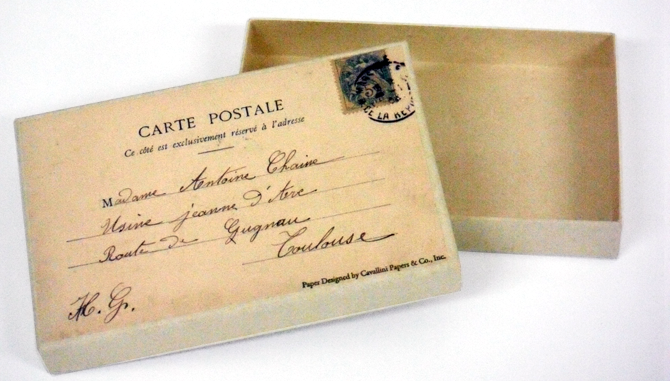 CARTE POSTALE
Ce côté est exclusivement réservé à l'adresse
Madame Antoine Chaine
Usine jeanne d'Arc
Route de Gugnau
Toulouse
Paper Designed by Cavallini Papers & Co., Inc.
H. G.